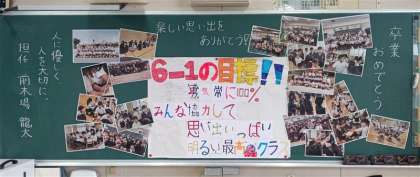 卒業
おめでとう
楽しい思い出を
ありがとう!!
6-1の目標!!
常に100%
みんな協力して
思い出いっぱい
明るい最高クラス
人に優しく
人を大切に、
担任 木場 龍太